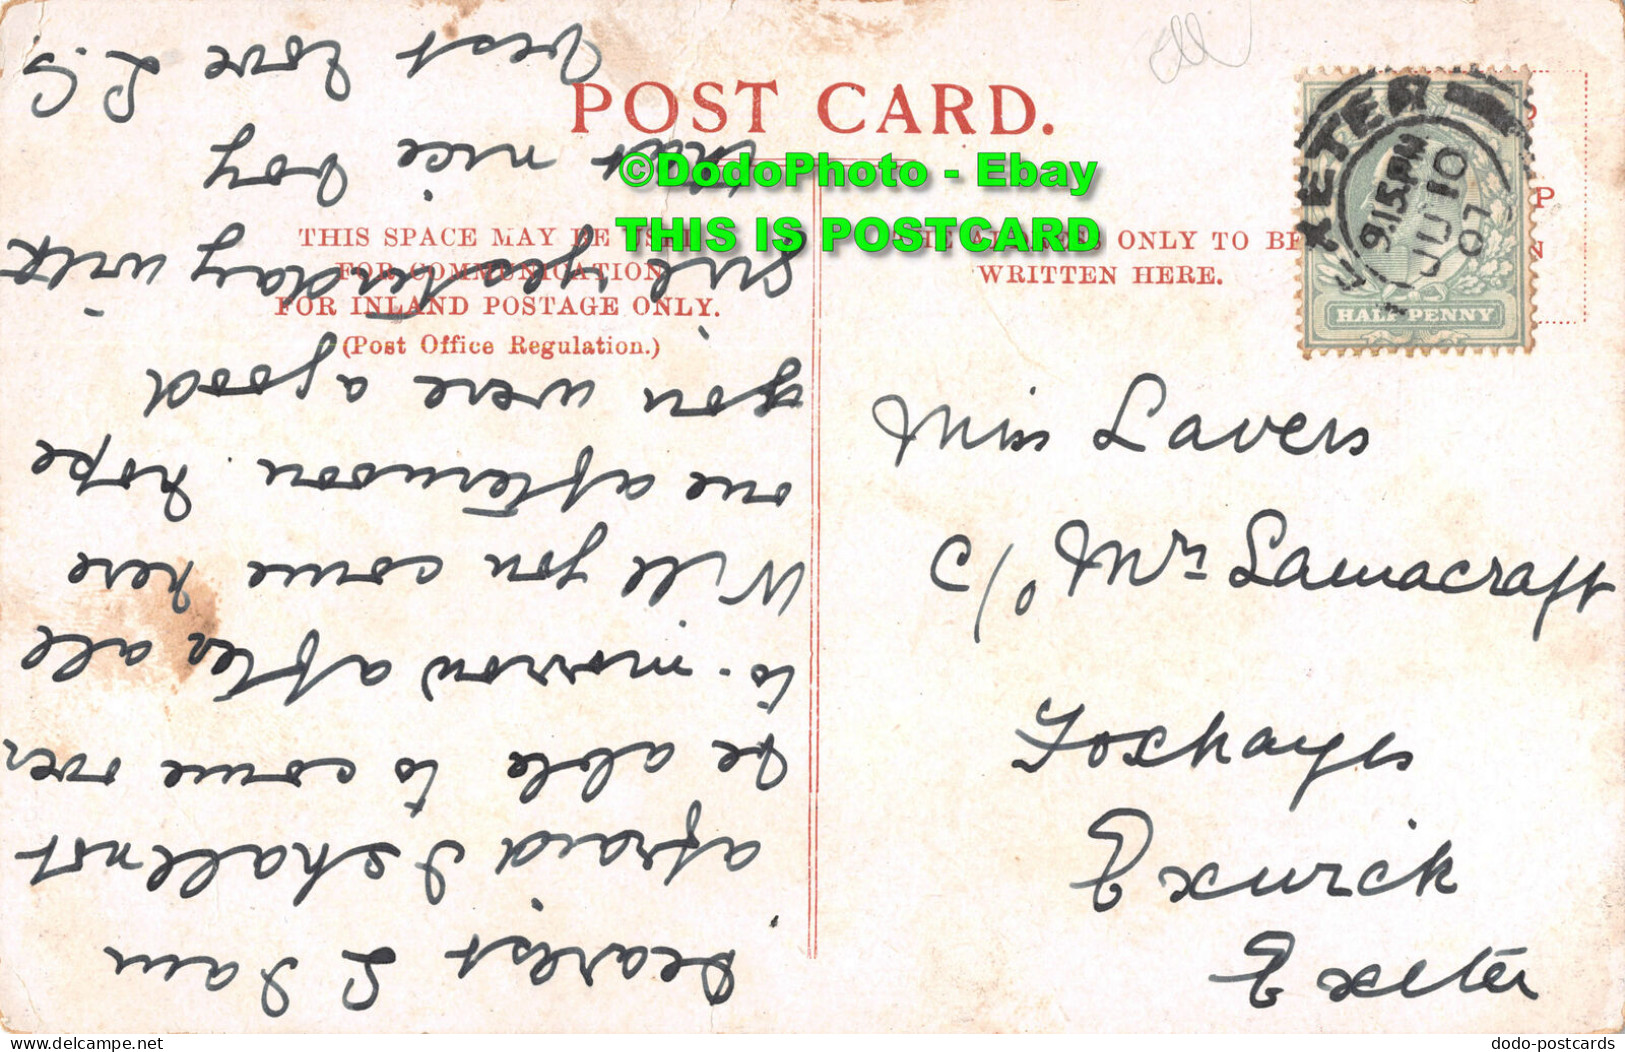 POST CARD.
THIS SPACE MAY BE USED
FOR COMMUNICATION
FOR INLAND POSTAGE ONLY.
(Post Office Regulation.)
ONLY TO BE
WRITTEN HERE.
©DodoPhoto - Ebay
THIS IS POSTCARD
EXETER
9.15 PM
JU 10
07
HALF PENNY
Miss Lavers
c/o Mrs Lamacraft
Foxhayes
Exwick
Exeter
Dearest L I am
afraid I shall not
be able to come over
to-morrow after all
Will you come here
one afternoon. hope
you were a good
girl yesterday with
that nice boy
Best love L.S
dodo-postcards
delcampe.net